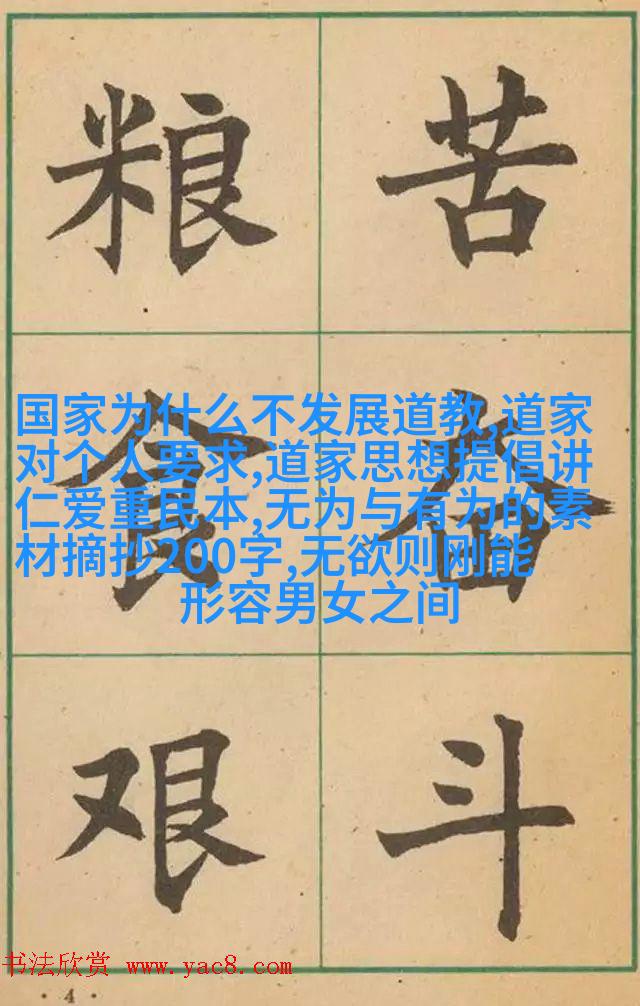 粮食艰
苦奋斗
国家为什么不发展道教,道家
对个人要求,道家思想提倡讲
仁爱重民本,无为与有为的素
材摘抄200字,无欲则刚能
形容男女之间
书法欣赏 www.yac8.com
· 4 ·